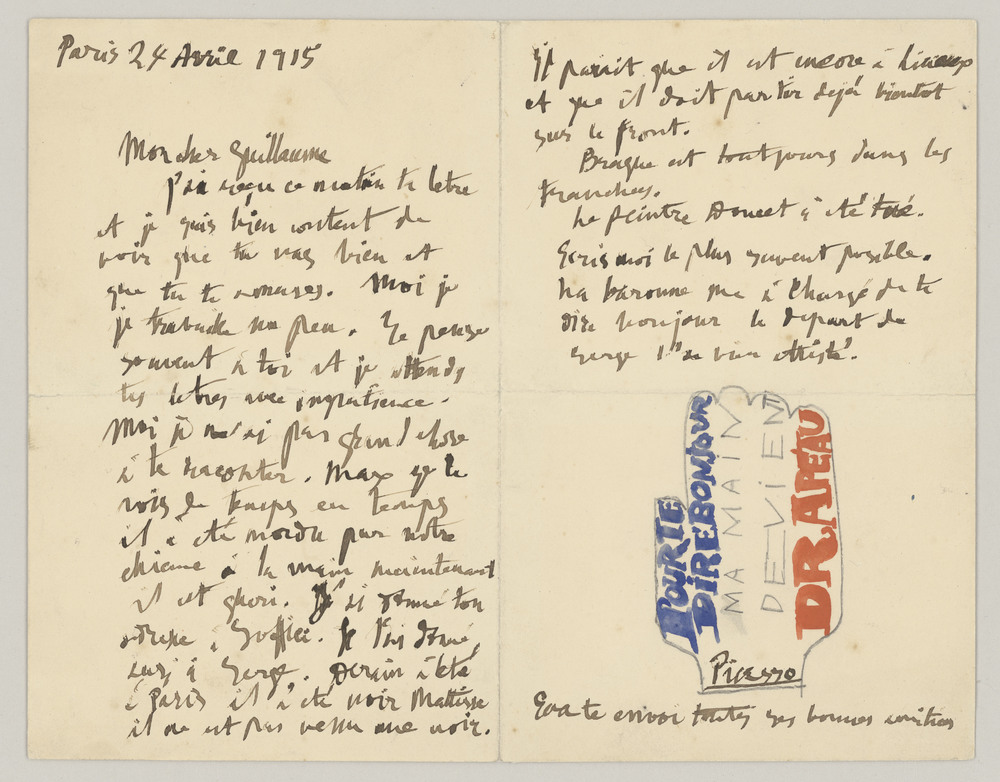 Paris 24 Avril 1915
Mon cher Guillaume
J'ai reçu ce matin ta letre
et je suis bien content de
voir que tu vas bien et
que tu te
Moi je
je travaille un peu. Je pense
souvent à toi et je attends
tes letres avec impatience.
Moi je ne ai pas grand chose
à te raconter. Max je le
vois de temps en temps
il à été mordu par notre
chienne à la main maintenant
il et gueri. J'ai donné ton
adresse à Soffici. Je l'ai donné
aussi à Serge. Derain à été
à Paris il à été voir Mattisse
il ne et pas venu me voir.
Il parait que il est encore à Lisieux
et que il doit partir dejá bientot
sur le front.
Braque est toutjours dans les
tranchees.
Le peintre Doucet à été tué.
Ecris moi le plus souvent possible.
La baronne me à chargé de te
dire bonjour le depart de
Serge l'a bien attristé.
POUR TE
DIRE BONJOUR
MA MAIN
DEVIENT
DRAPEAU
Picasso
Eva te envoi toutes ses bonnes amities